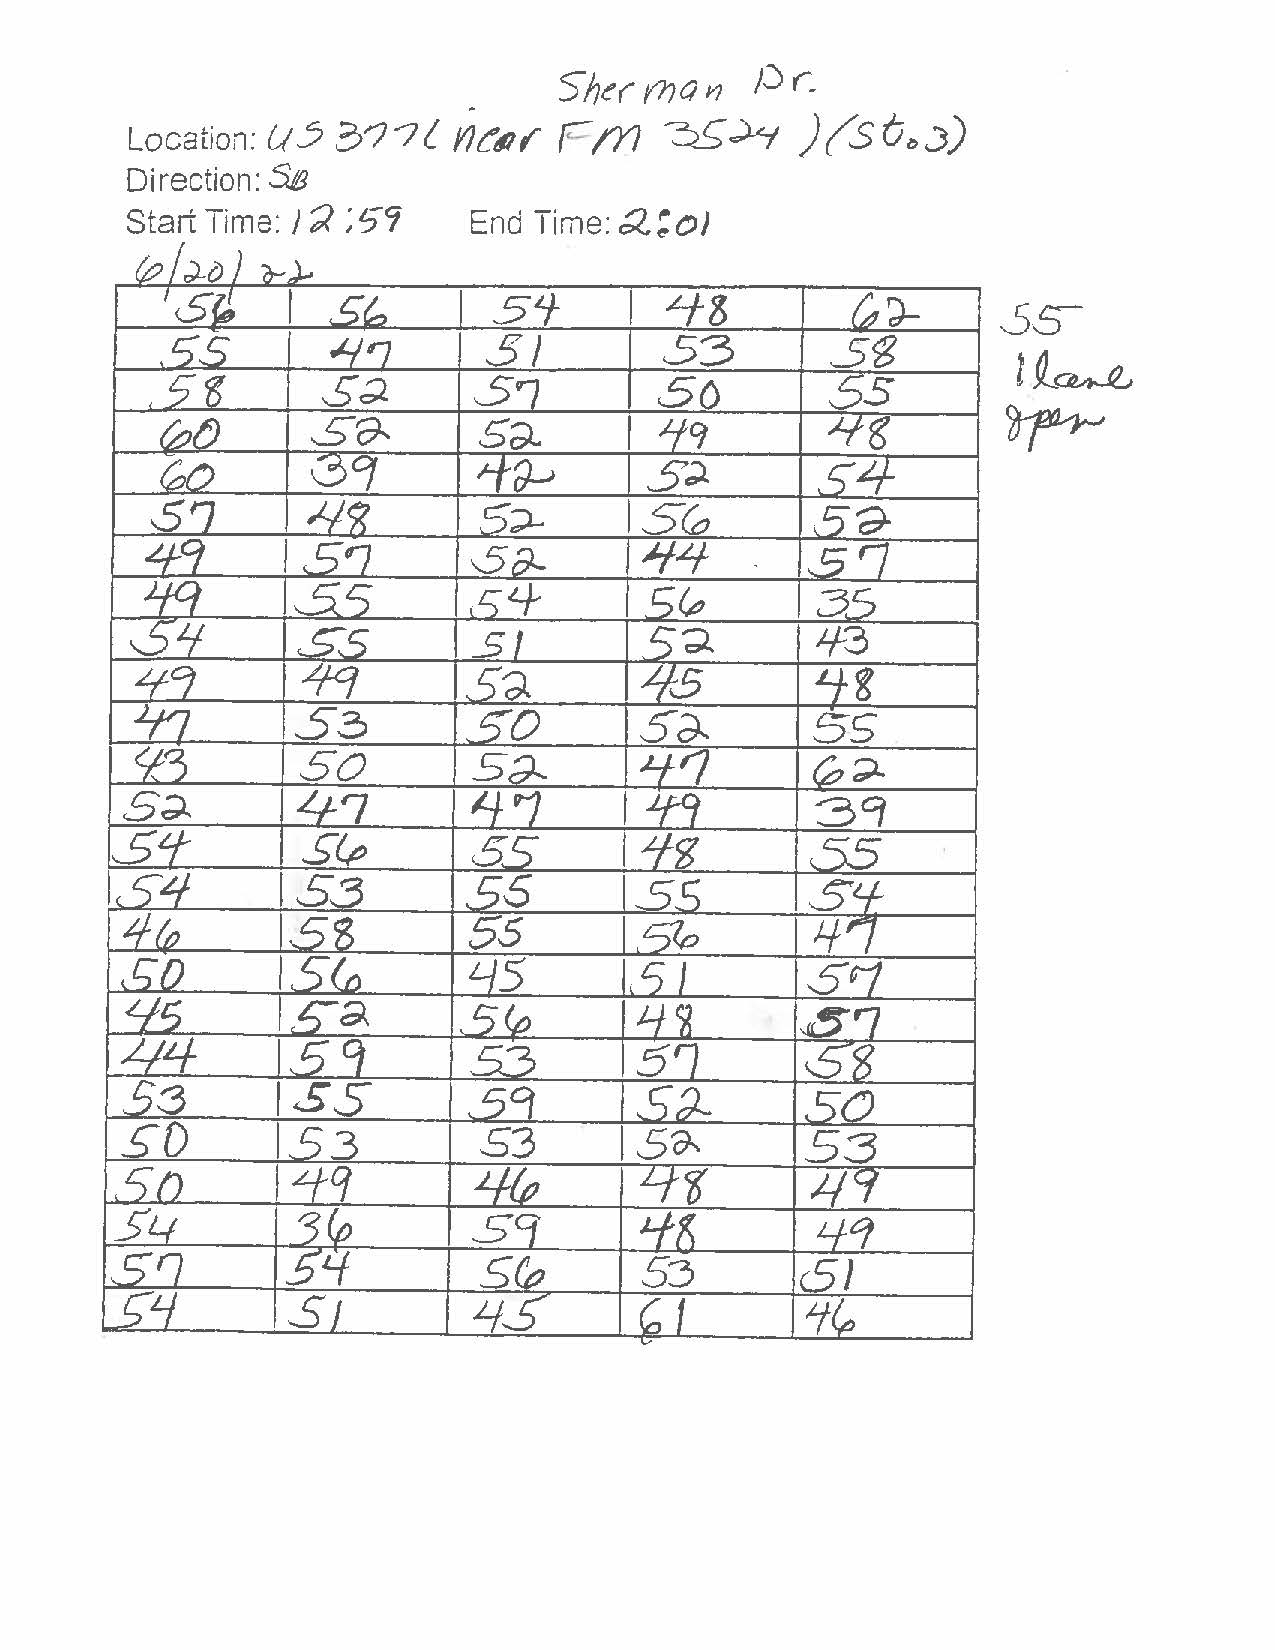 Sherman Dr.
Location: US 377 ( near FM 3524 ) (St. 3)
Direction: SB
Start Time: 12:59 End Time: 2:01
6/20/22
56 56 54 48 62 55
55 47 51 53 58 1 lane
58 52 57 50 55 open
60 52 52 49 48
60 39 42 52 54
57 48 52 56 52
49 57 52 44 57
49 55 54 56 35
54 55 51 52 43
49 49 52 45 48
47 53 50 52 55
43 50 52 47 62
52 47 47 49 39
54 56 55 48 55
54 53 55 55 54
46 58 55 56 47
50 56 45 51 57
45 52 56 48 57
44 59 53 57 58
53 55 59 52 50
50 53 53 52 53
50 49 46 48 49
54 36 59 48 49
57 54 56 53 51
54 51 45 61 46